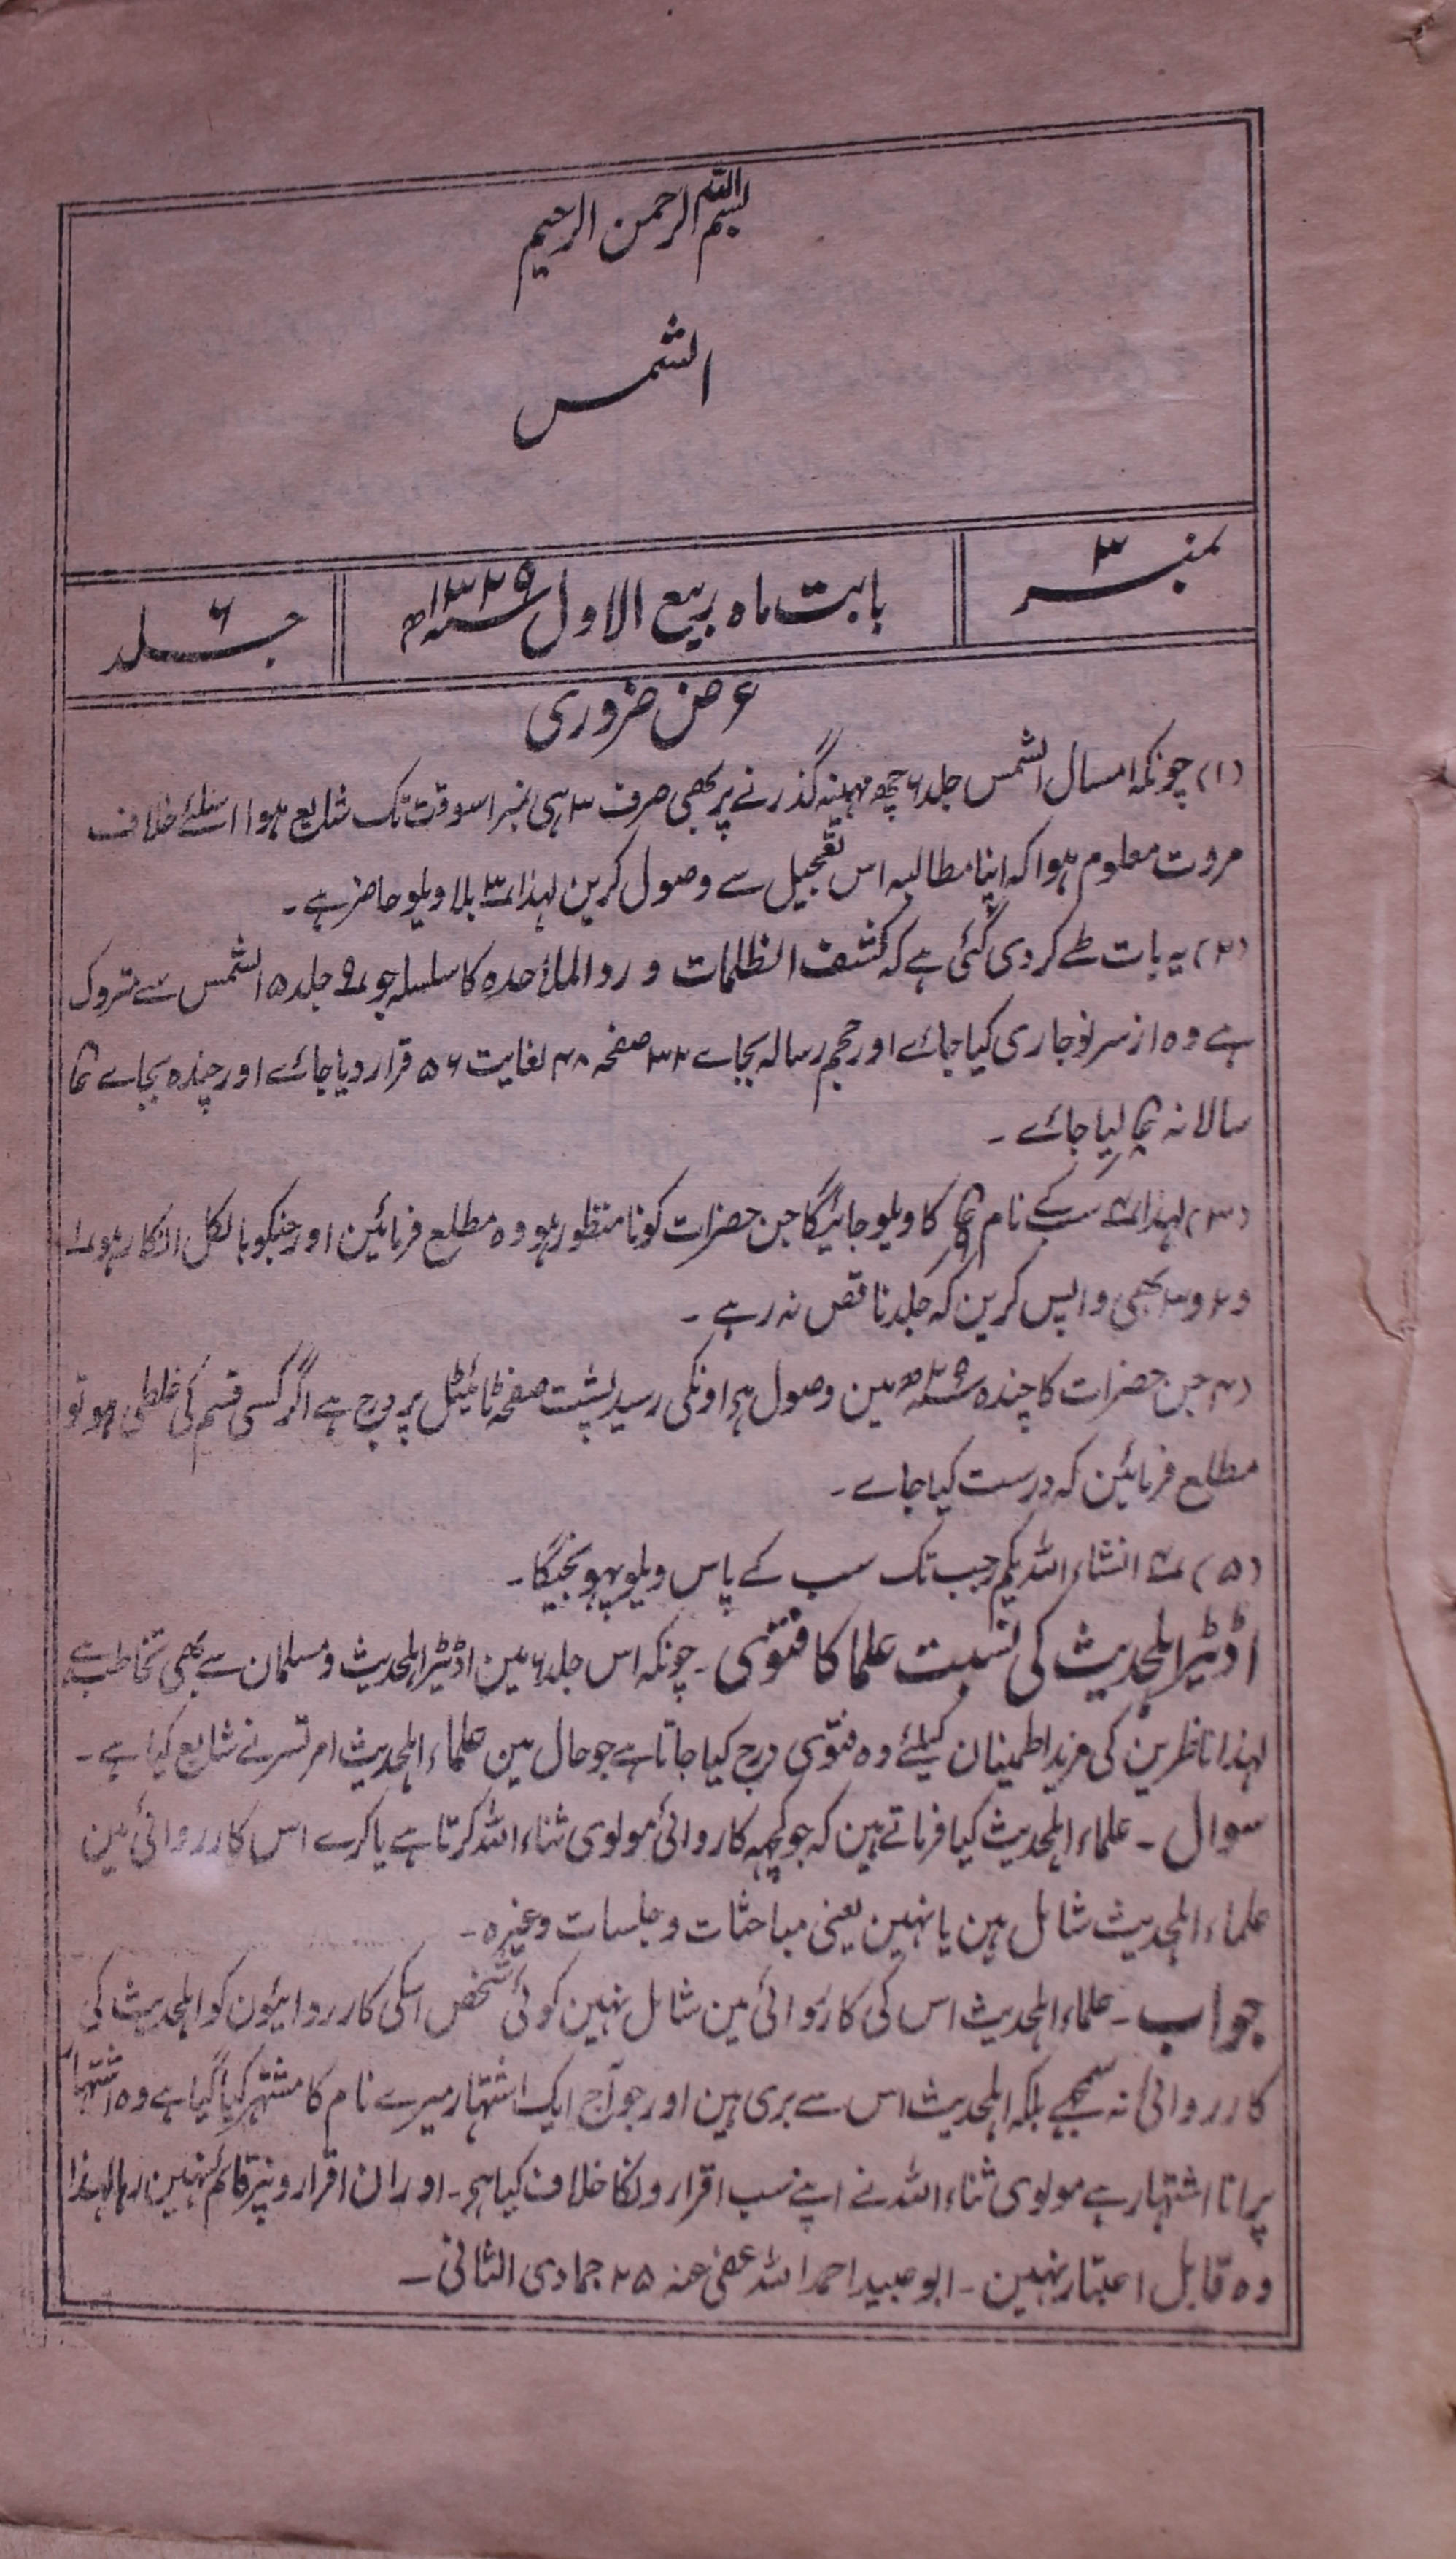 بسم اللہ الرحمن الرحیم
الشمس
نمبر ۳
بابت ماہ ربیع الاول سنہ ۱۳۲۹ھ
جلد ۶
عرض ضروری
(۱) چونکہ امسال الشمس جلد ۶ چھ مہینہ گذرنے پر بھی صرف ۳ ہی نمبر اسوقت تک شایع ہوا اسلئے خلاف
مروت معلوم ہوا کہ اپنا مطالبہ اس تعجیل سے وصول کرین لہذا نمبر ۳ بلا ویلو حاضر ہے ۔
(۲) یہ بات طے کر دی گئی ہے کہ کشف الظلمات و رد الملاحدہ کا سلسلہ جو نمبر ۹ جلد ۵ الشمس سے متروک
ہے وہ از سر نو جاری کیا جائے اور حجم رسالہ بجاے ۳۲ صفحہ ۴۸ لغایت ۵۶ قرار دیا جائے اور چندہ بجاے
سالانہ لیا جائے ۔
(۳) لہذا نمبر ۴ سب کے نام کا ویلو جائیگا جن حضرات کو نا منظور ہو وہ مطلع فرمائین اور جنکو بالکل انکار ہو نمبر ۱
و ۲ و ۳ بھی واپس کرین کہ جلد ناقص نہ رہے ۔
(۴) جن حضرات کا چندہ سنہ ۲۹ھ مین وصول ہوا اونکی رسید پشت صفحہ ٹائیٹل پر درج ہے اگر کسی قسم کی غلطی ہو تو
مطلع فرمائین کہ درست کیا جاے ۔
(۵) نمبر ۴ انشاء اللہ یکم رجب تک سب کے پاس ویلو پہونچیگا ۔
اڈیٹر اہلحدیث کی نسبت علما کا فتوی ۔ چونکہ اس جلد ۶ مین اڈیٹر اہلحدیث و مسلمان سے بھی تخاطب ہے
لہذا ناظرین کی مزید اطمینان کیلئے وہ فتوی درج کیا جاتا ہے جو حال مین علماء اہلحدیث امرتسر نے شایع کیا ہے ۔
سوال ۔ علماء اہلحدیث کیا فرماتے ہین کہ جو کچہہ کاروائی مولوی ثناء اللہ کرتا ہے یا کرے اس کارروائی مین
علماء اہلحدیث شامل ہین یا نہین یعنی مباحثات و جلسات وغیرہ ۔
جواب ۔ علماء اہلحدیث اس کی کاروائی مین شامل نہین کوئی شخص اسکی کارروائیون کو اہلحدیث کی
کارروائی نہ سمجھے بلکہ اہلحدیث اس سے بری ہین اور جو آج ایک اشتہار میرے نام کا مشتہر کیا گیا ہے وہ اشتہار
پرانا اشتہار ہے مولوی ثناء اللہ نے اپنے سب اقرارونکا خلاف کیا ہے ۔ اور ان اقرارونپر قائم نہین رہا لہذا
وہ قابل اعتبار نہین ۔ ابو عبید احمد اللہ عفی عنہ ۲۵ جمادی الثانی ۔